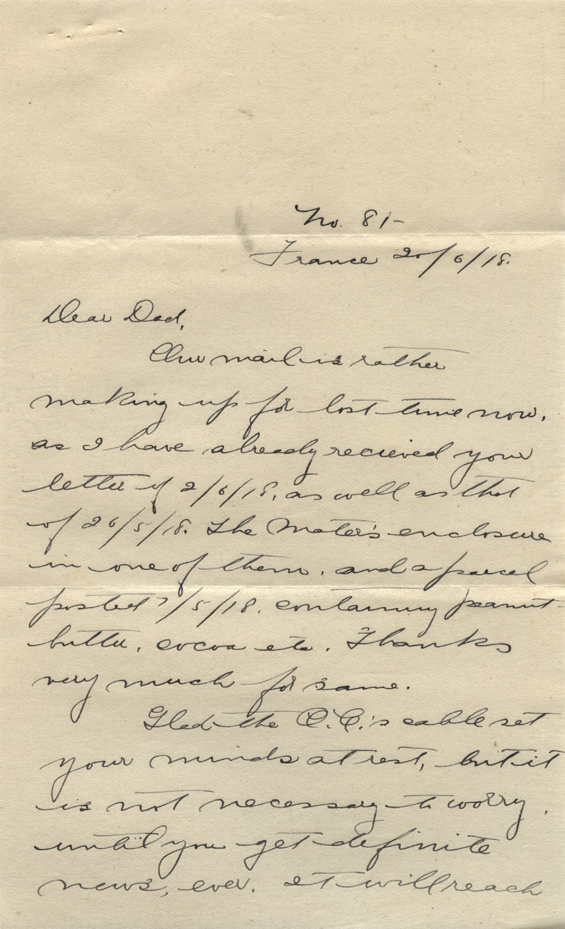 No. 81-
France 20/6/18.
Dear Dad,
Our mail is rather
making up for lost time now,
as I have already recieved your
letter of 2/6/18, as well as that
of 26/5/18. The Mater's enclosure
in one of them, and a parcel
posted 7/5/18. containing peanut-
butter, cocoa etc. Thanks
very much for same.
Glad the O.C.'s cable set
your minds at rest, but it
is not necessary to worry,
until you get definite
news, ever. It will reach